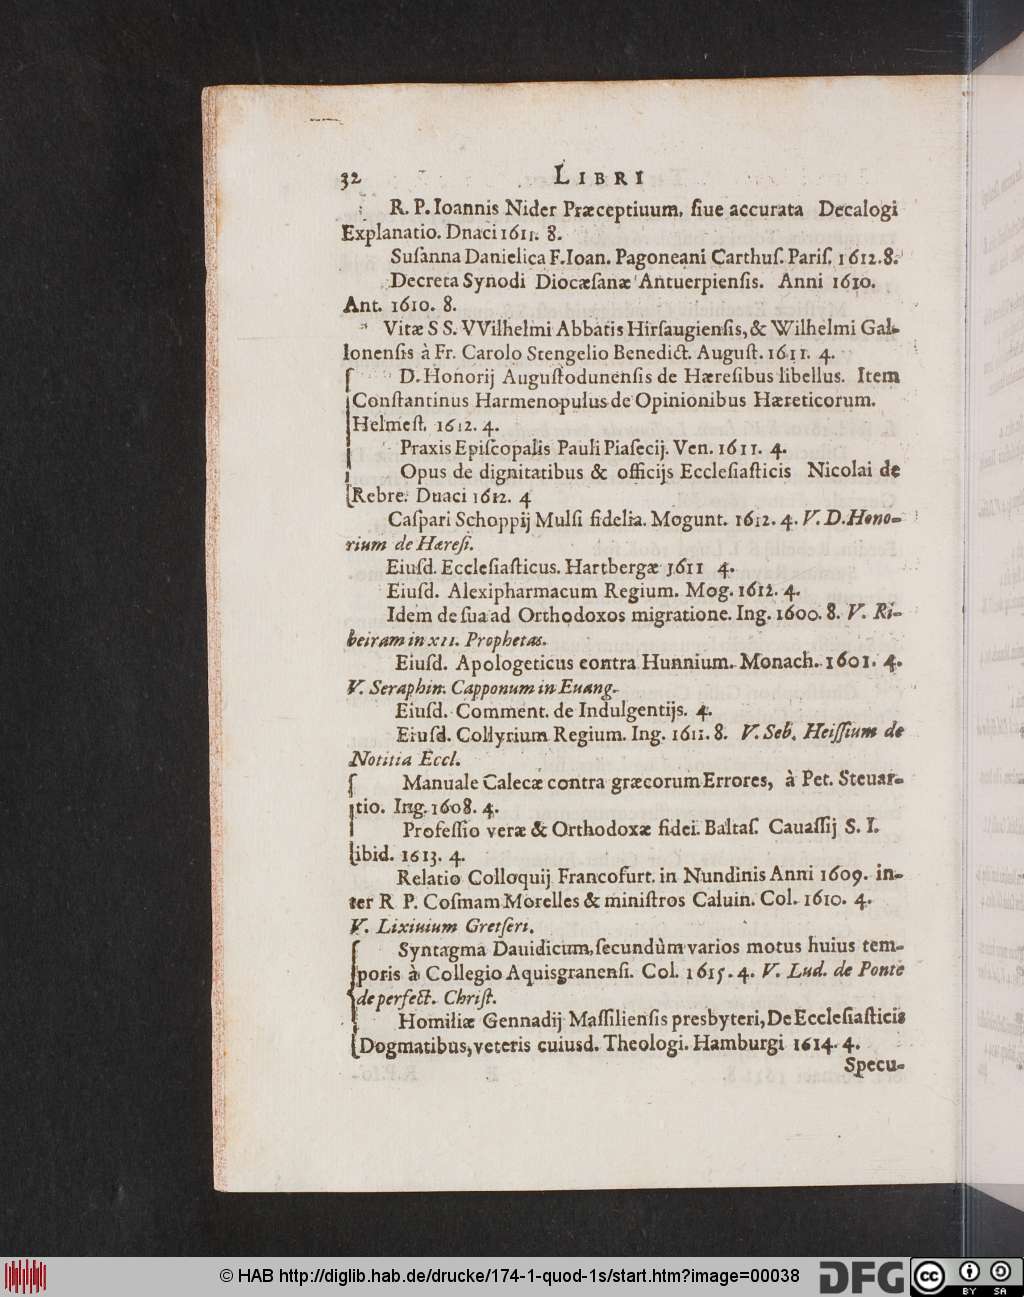 32 LIBRI
R. P. Ioannis Nider Præceptiuum, ſiue accurata Decalogi
Explanatio. Duaci 1611. 8.
Suſanna Danielica F. Ioan. Pagoneani Carthuſ. Pariſ. 1612. 8.
Decreta Synodi Diocæſanæ Antuerpienſis. Anni 1610.
Ant. 1610. 8.
Vitæ S S. VVilhelmi Abbatis Hirſaugienſis, & Wilhelmi Gal-
lonenſis à Fr. Carolo Stengelio Benedict. Auguſt. 1611. 4.
D. Honorij Auguſtodunenſis de Hæreſibus libellus. Item
Conſtantinus Harmenopulus de Opinionibus Hæreticorum.
Helmeſt. 1612. 4.
Praxis Epiſcopalis Pauli Piaſecij. Ven. 1611. 4.
Opus de dignitatibus & officijs Eccleſiaſticis Nicolai de
Rebre. Duaci 1612. 4
Caſpari Schoppij Mulſi fidelia. Mogunt. 1612. 4. V. D. Hono-
rium de Hæreſi.
Eiuſd. Eccleſiaſticus. Hartbergæ 1611 4.
Eiuſd. Alexipharmacum Regium. Mog. 1612. 4.
Idem de ſua ad Orthodoxos migratione. Ing. 1600. 8. V. Ri-
beiram in XII. Prophetas.
Eiuſd. Apologeticus contra Hunnium. Monach. 1601. 4.
V. Seraphin. Capponum in Euang.
Eiuſd. Comment. de Indulgentijs. 4.
Eiuſd. Collyrium Regium. Ing. 1611. 8. V. Seb. Heiſſium de
Notitia Eccl.
Manuale Calecæ contra græcorum Errores, à Pet. Steuar-
tio. Ing. 1608. 4.
Profeſſio veræ & Orthodoxæ fidei. Baltaſ. Cauaſſij S. I.
ibid. 1613. 4.
Relatio Colloquij Francofurt. in Nundinis Anni 1609. in-
ter R P. Coſmam Morelles & miniſtros Caluin. Col. 1610. 4.
V. Lixiuium Gretſeri.
Syntagma Dauidicum, ſecundùm varios motus huius tem-
poris à Collegio Aquisgranenſi. Col. 1615. 4. V. Lud. de Ponte
de perfect. Chriſt.
Homiliæ Gennadij Maſſilienſis presbyteri, De Eccleſiaſticis
Dogmatibus, veteris cuiusd. Theologi. Hamburgi 1614. 4.
Specu-
© HAB http://diglib.hab.de/drucke/174-1-quod-1s/start.htm?image=00038
DFG
cc BY SA